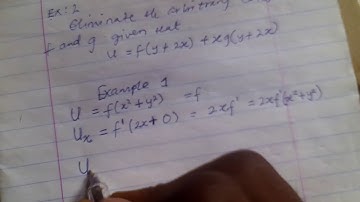 Ex: 2
Eliminate the arbitrary
f and g given that
u = f(y + 2x) + xg(y + 2x)
Example 1
U = f(x² + y²) = f
Uₓ = f'(2x + 0) = 2xf' = 2xf'(x² + y²)
U